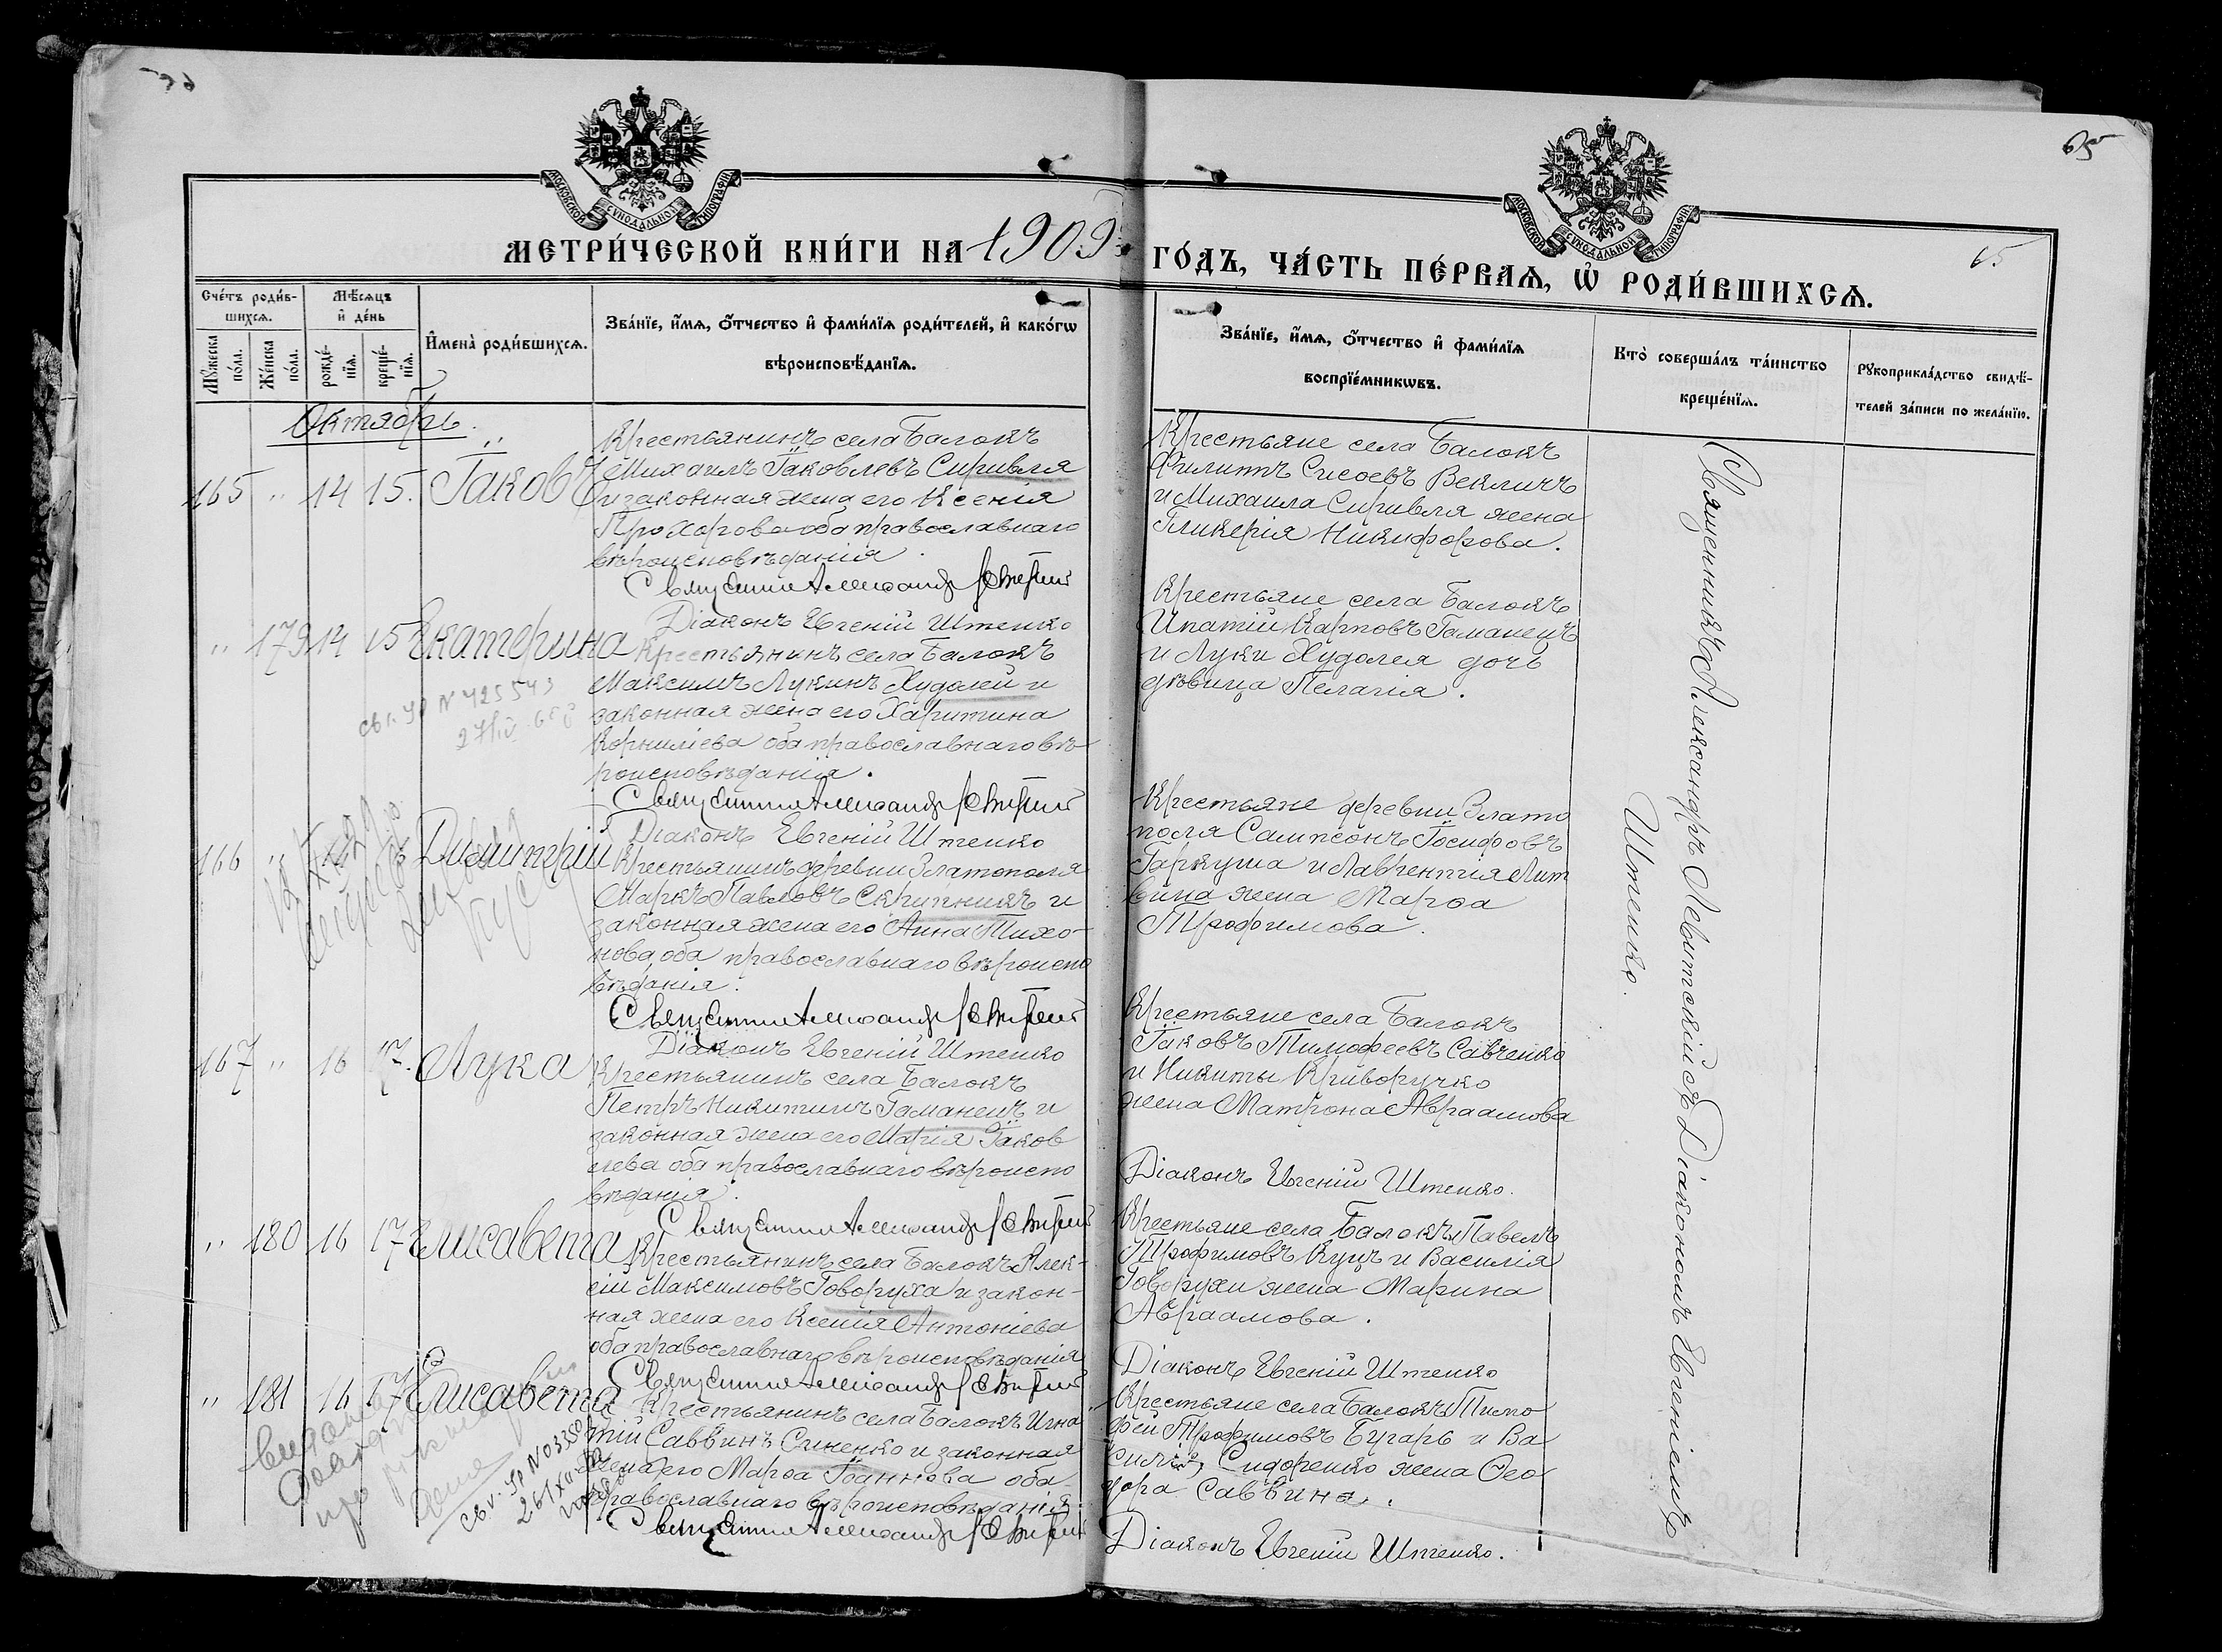 65
МОСКОВСКОЙ СУНОДАЛЬНОЙ ТИПОГРАФІИ
МОСКОВСКОЙ СУНОДАЛЬНОЙ ТИПОГРАФІИ
65
МЕТРИ́ЧЕСКОЙ КНИ́ГИ НА 1909 ГО́ДЪ, ЧА́СТЬ ПЕ́РВАѦ, Ѡ҆ РОДИ́ВШИХСѦ.
Сче́тъ роди́в-
шихсѧ.
Мꙋ́жеска по́ла.
Же́нска по́ла.
Мѣ́сѧцъ
и҆ де́нь
рожде́-
нїѧ.
креще́-
нїѧ.
И҆мена̀ роди́вшихсѧ.
Зва́нїе, и҆́мѧ, ѻ҆́тчество и҆ фами́лїѧ роди́телей, и҆ како́гѡ
вѣроисповѣ́данїѧ.
Зва́нїе, и҆́мѧ, ѻ҆́тчество и҆ фами́лїѧ
воспрїе́мникѡвъ.
Кто̀ соверша́лъ та́инство
креще́нїѧ.
Рꙋкоприкла́дство свидѣ́-
телей за́писи по жела́нїю.
Октябрь.
165 " 14 15. Іаковъ
Крестьянинъ села Балокъ
Михаилъ Іаковлевъ Сиривля
и законная жена его Ксенія
Прохорова оба православнаго
вѣроисповѣданія.
Священникъ Александръ Левитскій
Діаконъ Евгеній Штенко
Крестьяне села Балокъ
Филиппъ Сисоевъ Векличъ
и Михаила Сиривля жена
Гликерія Никифорова.
" 179 14 15 Екатерина
Крестьянинъ села Балокъ
Максимъ Лукинъ Худолей и
законная жена его Харитина
Корниліева оба православнаго вѣ-
роисповѣданія.
Священникъ Александръ Левитскій
Діаконъ Евгеній Штенко
Крестьяне села Балокъ
Ипатій Карповъ Гаманецъ
и Луки Худолея дочь
дѣвица Пелагія.
166 " Димитрій
Крестьянинъ деревни Златополя
Маркъ Павловъ Скрипникъ и
законная жена его Анна Тихо-
нова, оба православнаго вѣроиспо
вѣданія.
Священникъ Александръ Левитскій
Діаконъ Евгеній Штенко
Крестьяне деревни Злато
поля Сампсонъ Іосифовъ
Гаркуша и Лаврентія Лит
вина жена Марѳа
Трофимова.
167 " 16 17. Лука
Крестьянинъ села Балокъ
Петръ Никитинъ Гаманецъ и
законная жена его Марія Іаков
лева оба православнаго вѣроиспо
вѣданія.
Священникъ Александръ Левитскій
Крестьяне села Балокъ
Іаковъ Тимофеевъ Савченко
и Никиты Криворучко
жена Матрона Авраамова
Діаконъ Евгеній Штенко.
" 180 16 17 Елисавета
Крестьянинъ села Балокъ Алек-
сій Максимовъ Говоруха и закон-
ная жена его Ксенія Антоніева
оба православнаго вѣроисповѣданія
Священникъ Александръ Левитскій
Крестьяне села Балокъ Павелъ
Трофимовъ Куцъ и Василія
Говорухи жена Марина
Авраамова.
Діаконъ Евгеній Штенко
" 181 16 17 Елисавета
Крестьянинъ села Балокъ Игна
тій Саввинъ Синенко и законная
жена его Марѳа Іоаннова оба
православнаго вѣроисповѣданія.
Священникъ Александръ Левитскій
Крестьяне села Балокъ Тимо
фей Трофимовъ Бугарь и Ва
силія Сидоренко жена Ѳео
дора Саввина.
Діаконъ Евгеній Штенко.
Священникъ Александръ Левитскій съ Діакономъ Евгеніемъ
Штенко.